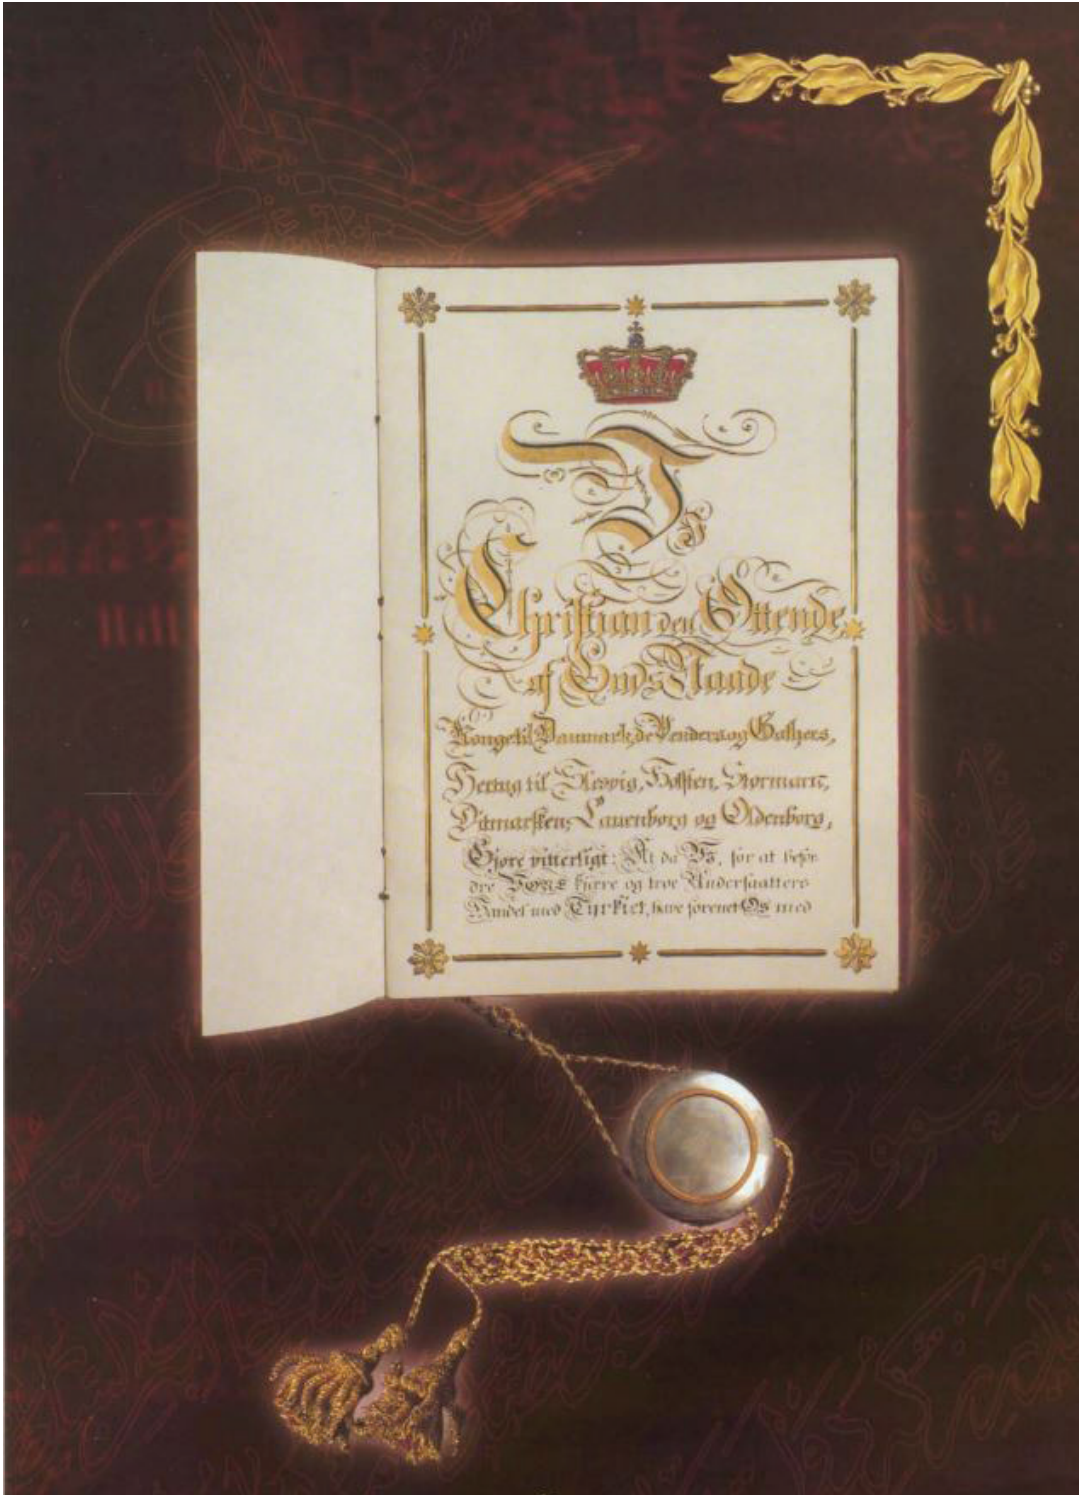 Vi
Christian den Ottende,
af Guds Naade
Konge til Danmark, de Venders og Gothers,
Hertug til Slesvig, Holsten, Stormarn,
Ditmarsken, Lauenborg og Oldenborg,
Gjøre vitterligt: At da Vi, for at befor-
dre Vore kjære og troe Undersaatters
Handel med Tyrkiet, have forenet Os med